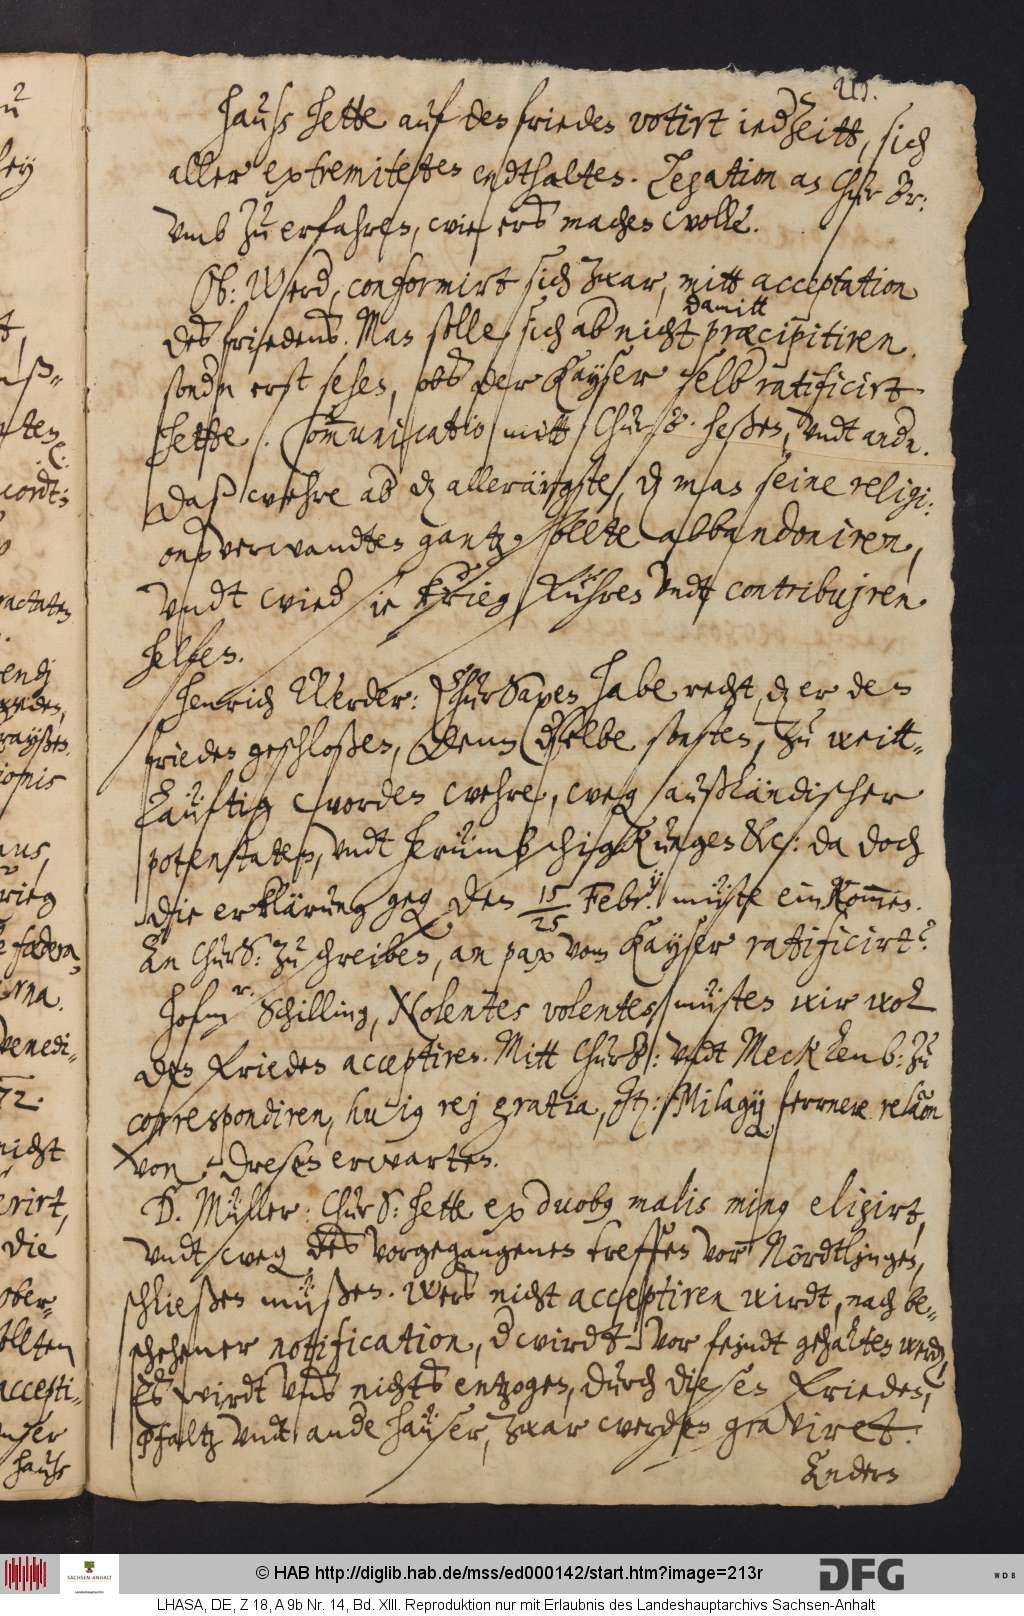 213.
hauß hette auf den frieden votirt iederzeitt, sich
aller extremiteten endthalten. Legation an Chur Br:
umb zu erfahren, wie ers machen wolle.
Ob: Werd, conformirt sich zwar, mitt acceptation
des friedens. Man solle sich ab nicht damitt præcipitiren.
sondn erst sehen, obs der Kayser selb ratificirt
hette. Communicatio mitt ChurB. heßen, undt andn.
Daß wehre ab dz allerärgste, dz man seine religi:
onsverwandten gantz sollte abbandoniren,
undt wied sie krieg führen undt contribuiren
helfen.
Henrich Werder: ChurSaxen habe recht, dz er den
frieden geschloßen, denn dselbe sonsten, zu weitt-
läufftig worden wehre, weg außländischer
potentaten, undt herümbschigkungen &c: da doch
die erklärung geg den 15/25 Febr.ij müste einkommen.
An ChurS: zu schreiben, an pax vom Kayser ratificirt?
Hofmr. Schilling, Nolentes volentes müsten wir wol
den frieden acceptiren. Mitt ChurB: undt Mecklenb: zu
correspondiren, hujus rej gratia, Jt: Milagij fernere relaon
von Dresen erwarten.
D. Müller: ChurS: hette ex duobus malis minus eligirt,
undt weg des vorgegangenen treffen vor Nördtlingen,
schließen müßen. Wers nicht acceptiren wirdt, nach be-
schehener notification, d wirdt vor feindt gehalten werdn,
Es wirdt uns nichts entzogen, durch diesen frieden,
Pfaltz undt ande häuser, zwar werden graviret.
Anders
© HAB http://diglib.hab.de/mss/ed000142/start.htm?image=213r
SACHSEN-ANHALT
DFG
WDB
LHASA, DE, Z 18, A 9b Nr. 14, Bd. XIII. Reproduktion nur mit Erlaubnis des Landeshauptarchivs Sachsen-Anhalt